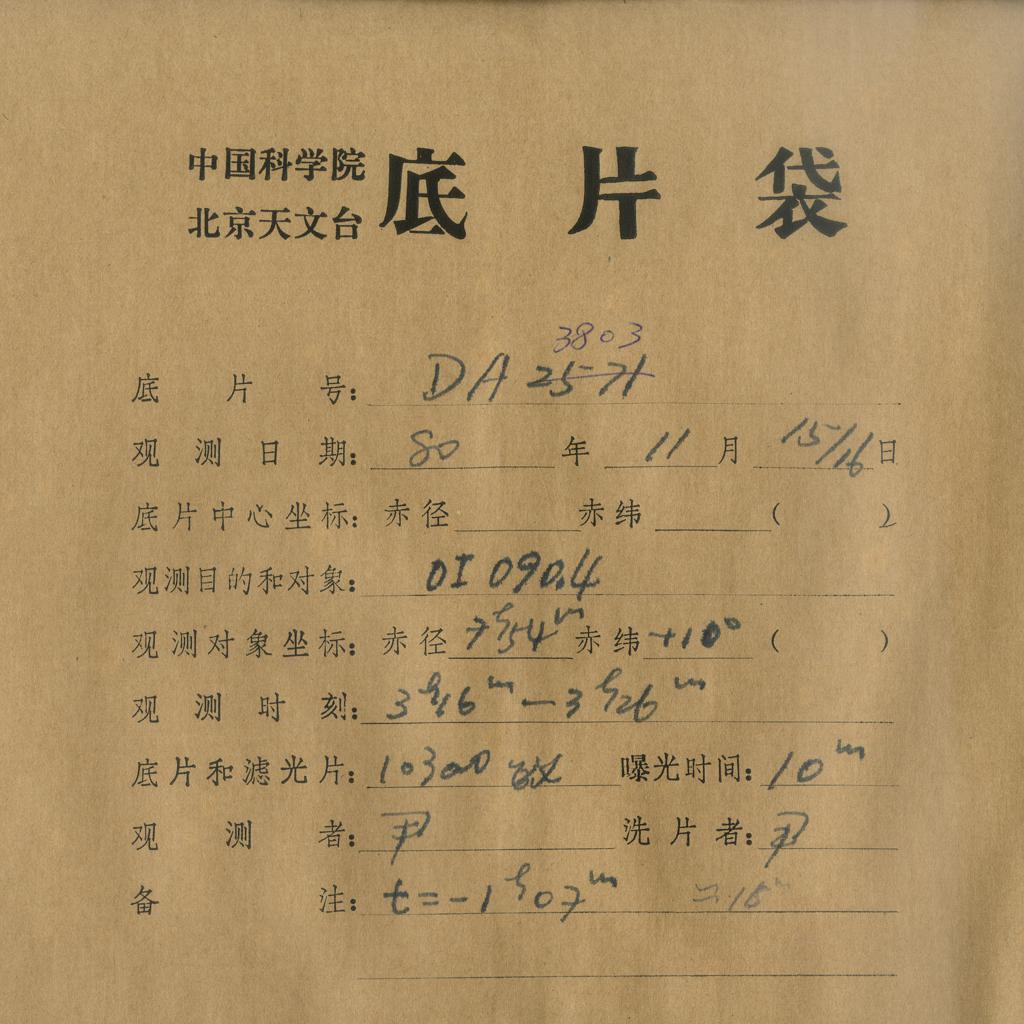 中国科学院
北京天文台
底片袋
3803
底片号: DA 2571
观测日期: 80 年 11 月 15/16 日
底片中心坐标: 赤径 赤纬 ( )
观测目的和对象: OI 090.4
观测对象坐标: 赤径 7h54m 赤纬 +10° ( )
观测时刻: 3h16m — 3h26m
底片和滤光片: 103aO 曝光时间: 10m
观测者: 尹 洗片者: 尹
备注: t=-1h07m